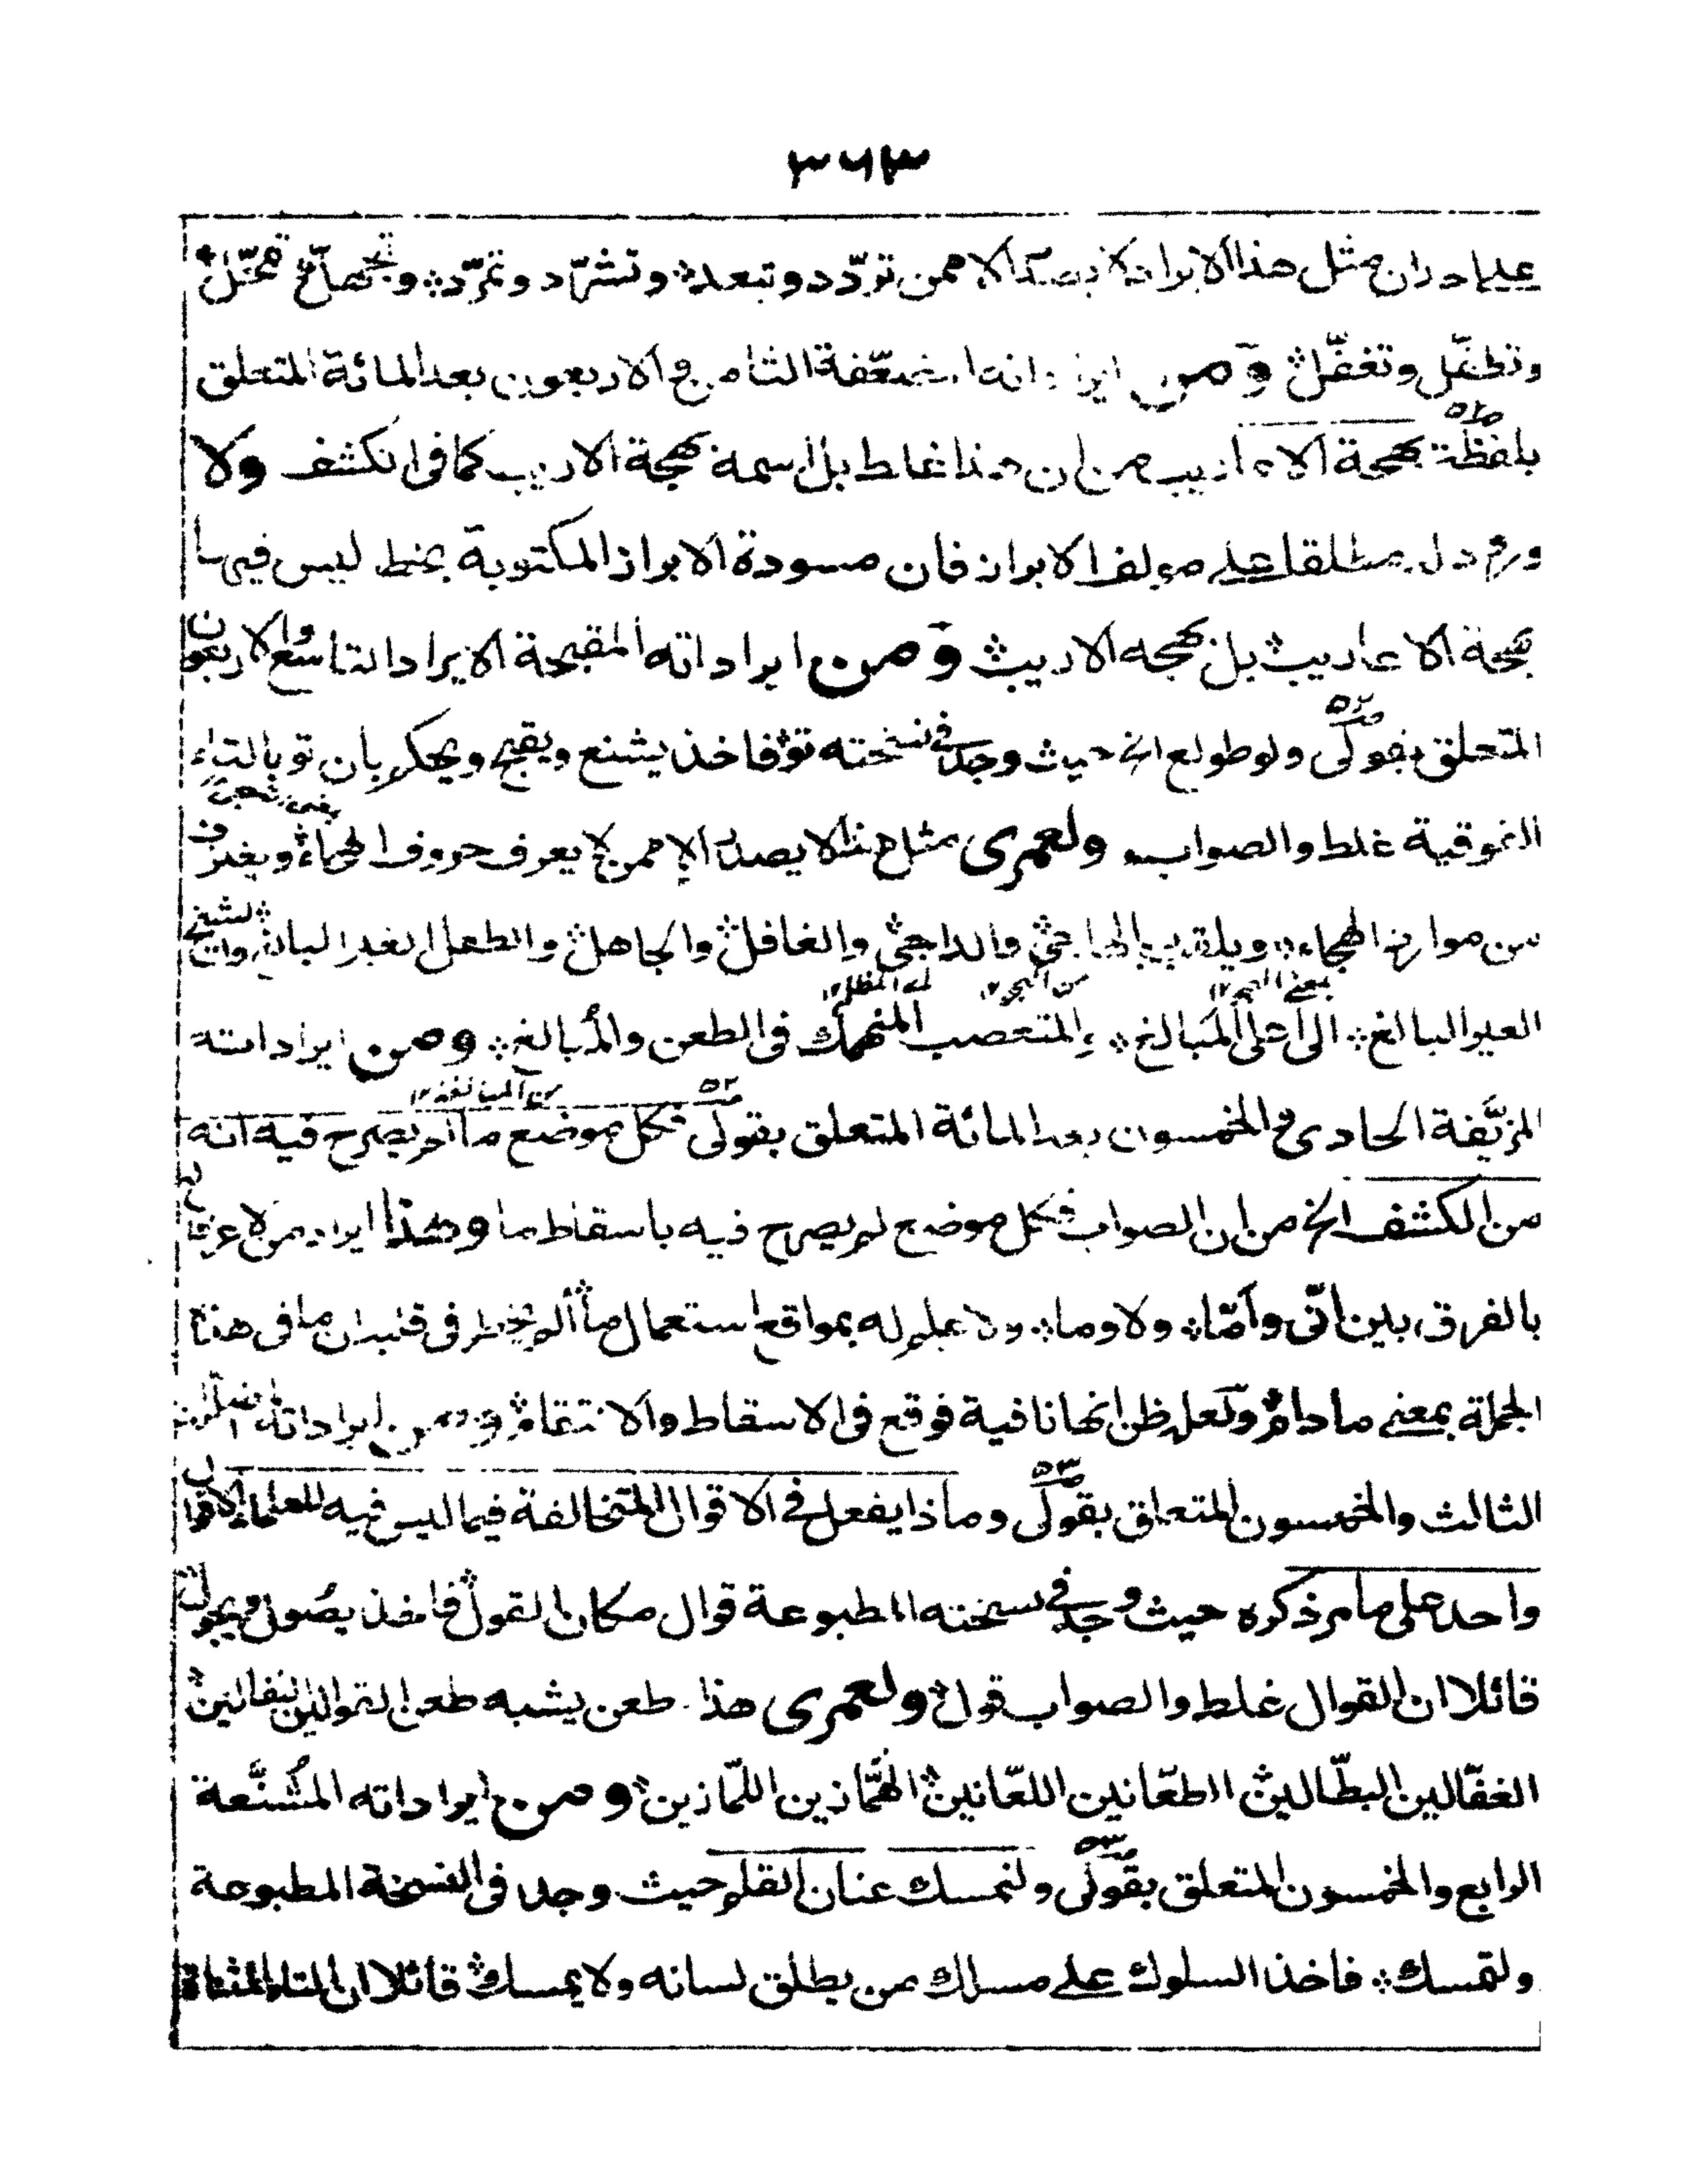 ٣٦٣
مثل هذا الايراد لا يصدر الا ممن تردّد وتبعد وتشرّد وتمرّد
وتطفّل وتغفّل ومن ايراداته الثامن والاربعون بعد المائة المتعلق
بلفظة بهجة الاعاريب من ان هذا غلط بل اسمه بهجة الاريب كما فى الكشف ولا
مطلقا على مولف الابراز فان مسودة الابراز المكتوبة بخط ليس فيها
بهجة الاعاريب بل بهجه الاريب ومن ايراداته المقبحة الايراد التاسع والاربعون
المتعلق بقولى ولو طولع الخ حيث وجد فى نسخته تو فاخذ يشنع ويقبح ويحكم بان تو بالتاء
الفوقية غلط والصواب ولعمرى مثل هذا لا يصدر الا ممن لا يعرف حروف الهجاء ويغترف
من موارد الهجاء ويلقب بالهاجى والداجى والغافل والجاهل والطفل الغير البالغ والشيخ
الغير البالغ الى اعلى المبالغ والمتعصب المنهمك فى الطعن والمبالغ ومن ايراداته
المزيَّفة الحادى والخمسون بعد المائة المتعلق بقولى فكل موضع ما لم يصرح فيه انه
من الكشف الخ من ان الصواب فكل موضع لم يصرح فيه باسقاط ما وهذا ايراد من لا عرفان له
بالفرق بين انّى وامّا ولا وما ولا علم له بمواقع استعمال ما ألم يخطر فى قلبه ان ما فى هذه
الجملة بمعنى مادام ولعله ظن انها نافية فوقع فى الاسقاط والانتقام ومن ايراداته
الثالث والخمسون المتعلق بقولى وماذا يفعل فى الاقوال المتخالفة فيما ليس فيه للعلماء الا قول
واحد على ما مر ذكره حيث وجد فى نسخته المطبوعة قوال مكان القول فاخذ يصول ويجول
قائلا ان القوال غلط والصواب قول ولعمرى هذا طعن يشبه طعن القوالين النفالين
الغفّالين البطّالين الطعّانين اللعّانين الهمّازين اللمّازين ومن ايراداته المشنَّعة
الرابع والخمسون المتعلق بقولى ولنمسك عنان القلم حيث وجد فى النسخة المطبوعة
ولتمسك فاخذ السلوك على مسلك من يطلق لسانه ولا يمسك قائلا ان التاء المثناة